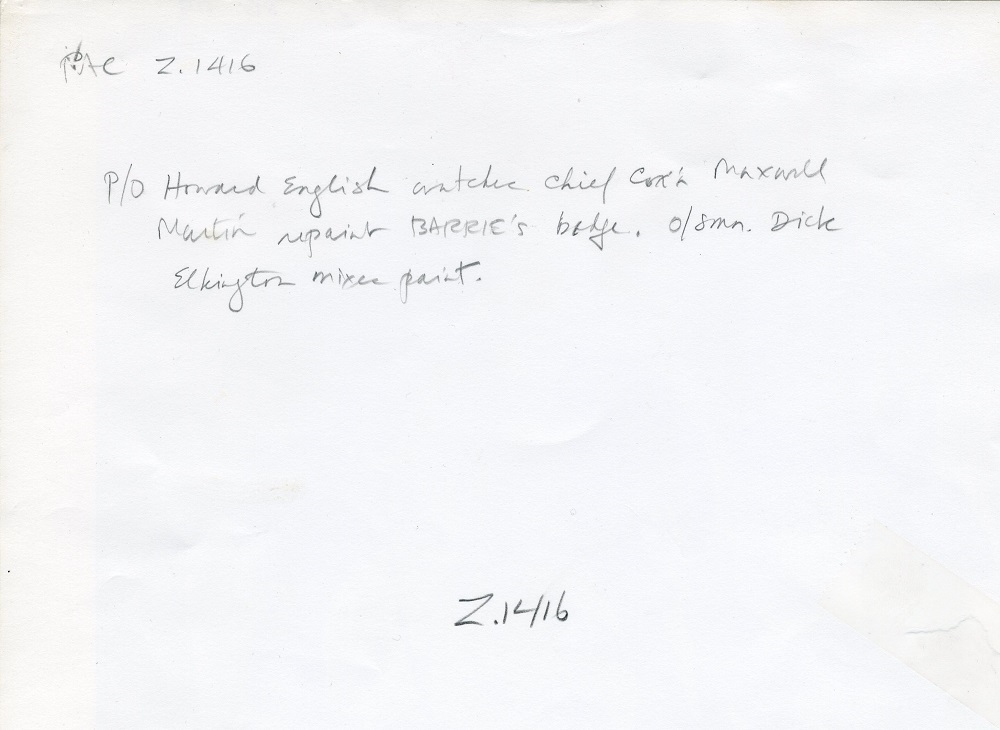 PAC Z.1416
P/O Howard English watches Chief Cox'n Maxwell
Martin repaint BARRIE's badge. O/Smn. Dick
Elkington mixes paint.
Z.1416